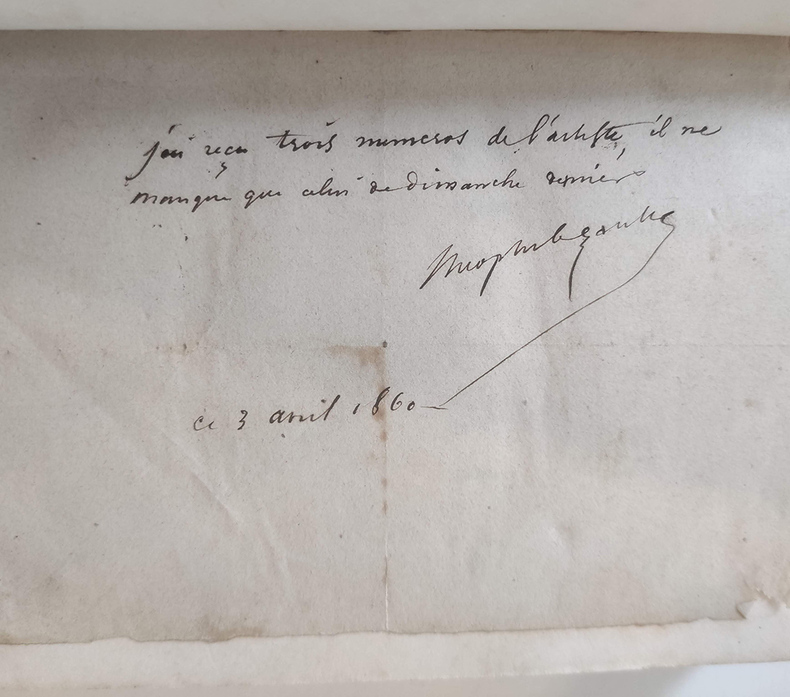 j'ai reçu trois numeros de l'artiste, il ne
manque que celui de dimanche dernier
Theophile gautier
ce 3 avril 1860